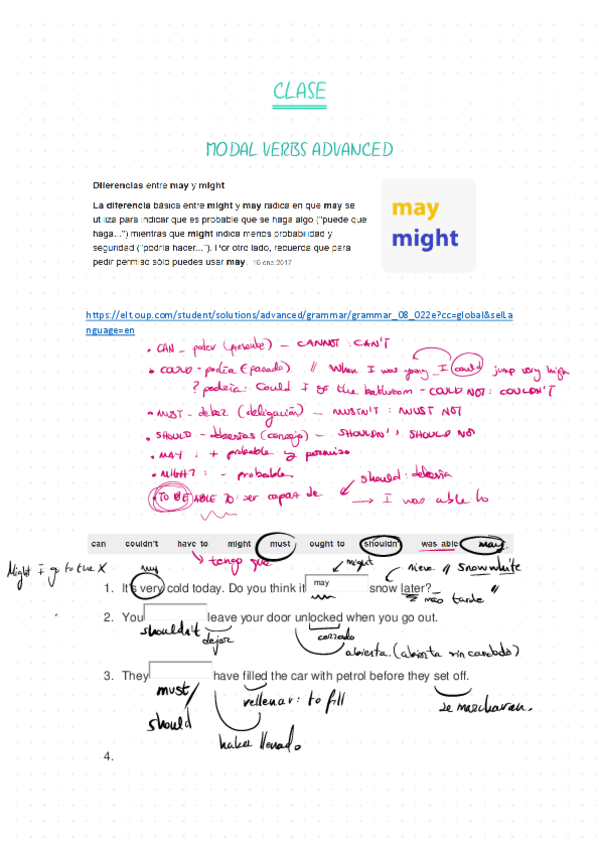 CLASE
MODAL VERBS ADVANCED
Diferencias entre may y might
La diferencia básica entre might y may radica en que may se
utiliza para indicar que es probable que se haga algo ("puede que
haga...") mientras que might indica menos probabilidad y
seguridad ("podría hacer..."). Por otro lado, recuerda que para
pedir permiso sólo puedes usar may. 16 ene 2017
may
might
https://elt.oup.com/student/solutions/advanced/grammar/grammar_08_022e?cc=global&selLa
nguage=en
• CAN - poder (presente) - CANNOT : CAN'T
• COULD - podía (Pasado) // When I was young I could jump very high
? podría: Could I go the bathroom - COULD NOT : COULDN'T
• MUST - deber (obligación) - MUSTN'T : MUST NOT
• SHOULD - deberías (consejo) - SHOULDN' SHOULD NOT
• MAY : + probable y permiso
• MIGHT : - probable
should : debería
• TO BE ABLE TO : ser capaz de → I was able to
can couldn't have to might must ought to shouldn't was able may
tengo que
might
nieve // Snow white
Might I go to the X
muy
1. It's very cold today. Do you think it may snow later?
más tarde
2. You leave your door unlocked when you go out.
shouldn't dejar cerrado
abierta. (abierta sin candado)
3. They have filled the car with petrol before they set off.
must/ rellenar : to fill se marcharan.
should
haber llenado
4.